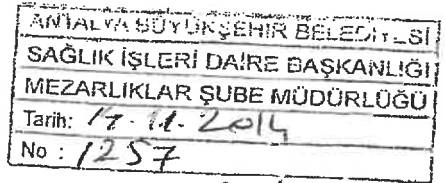 ANTALYA BÜYÜKŞEHİR BELEDİYESİ
SAĞLIK İŞLERİ DAİRE BAŞKANLIĞI
MEZARLIKLAR ŞUBE MÜDÜRLÜĞÜ
Tarih: 17.11.2014
No : 1257